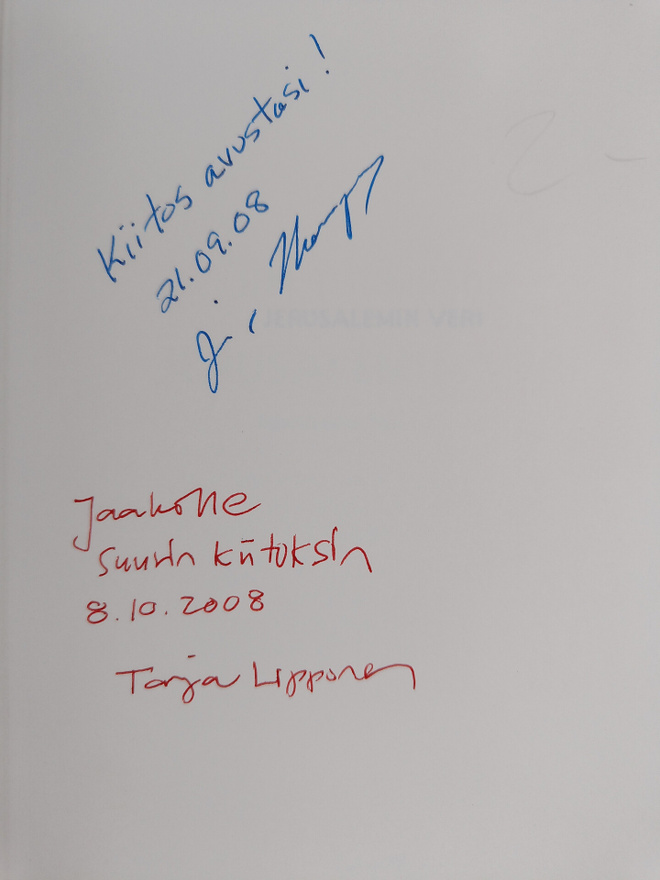 Kiitos avustasi!
21.09.08
J.
Jaakolle
Suurin kiitoksin
8.10.2008
Tarja Lipponen
JERUSALEMIN VERI
2-